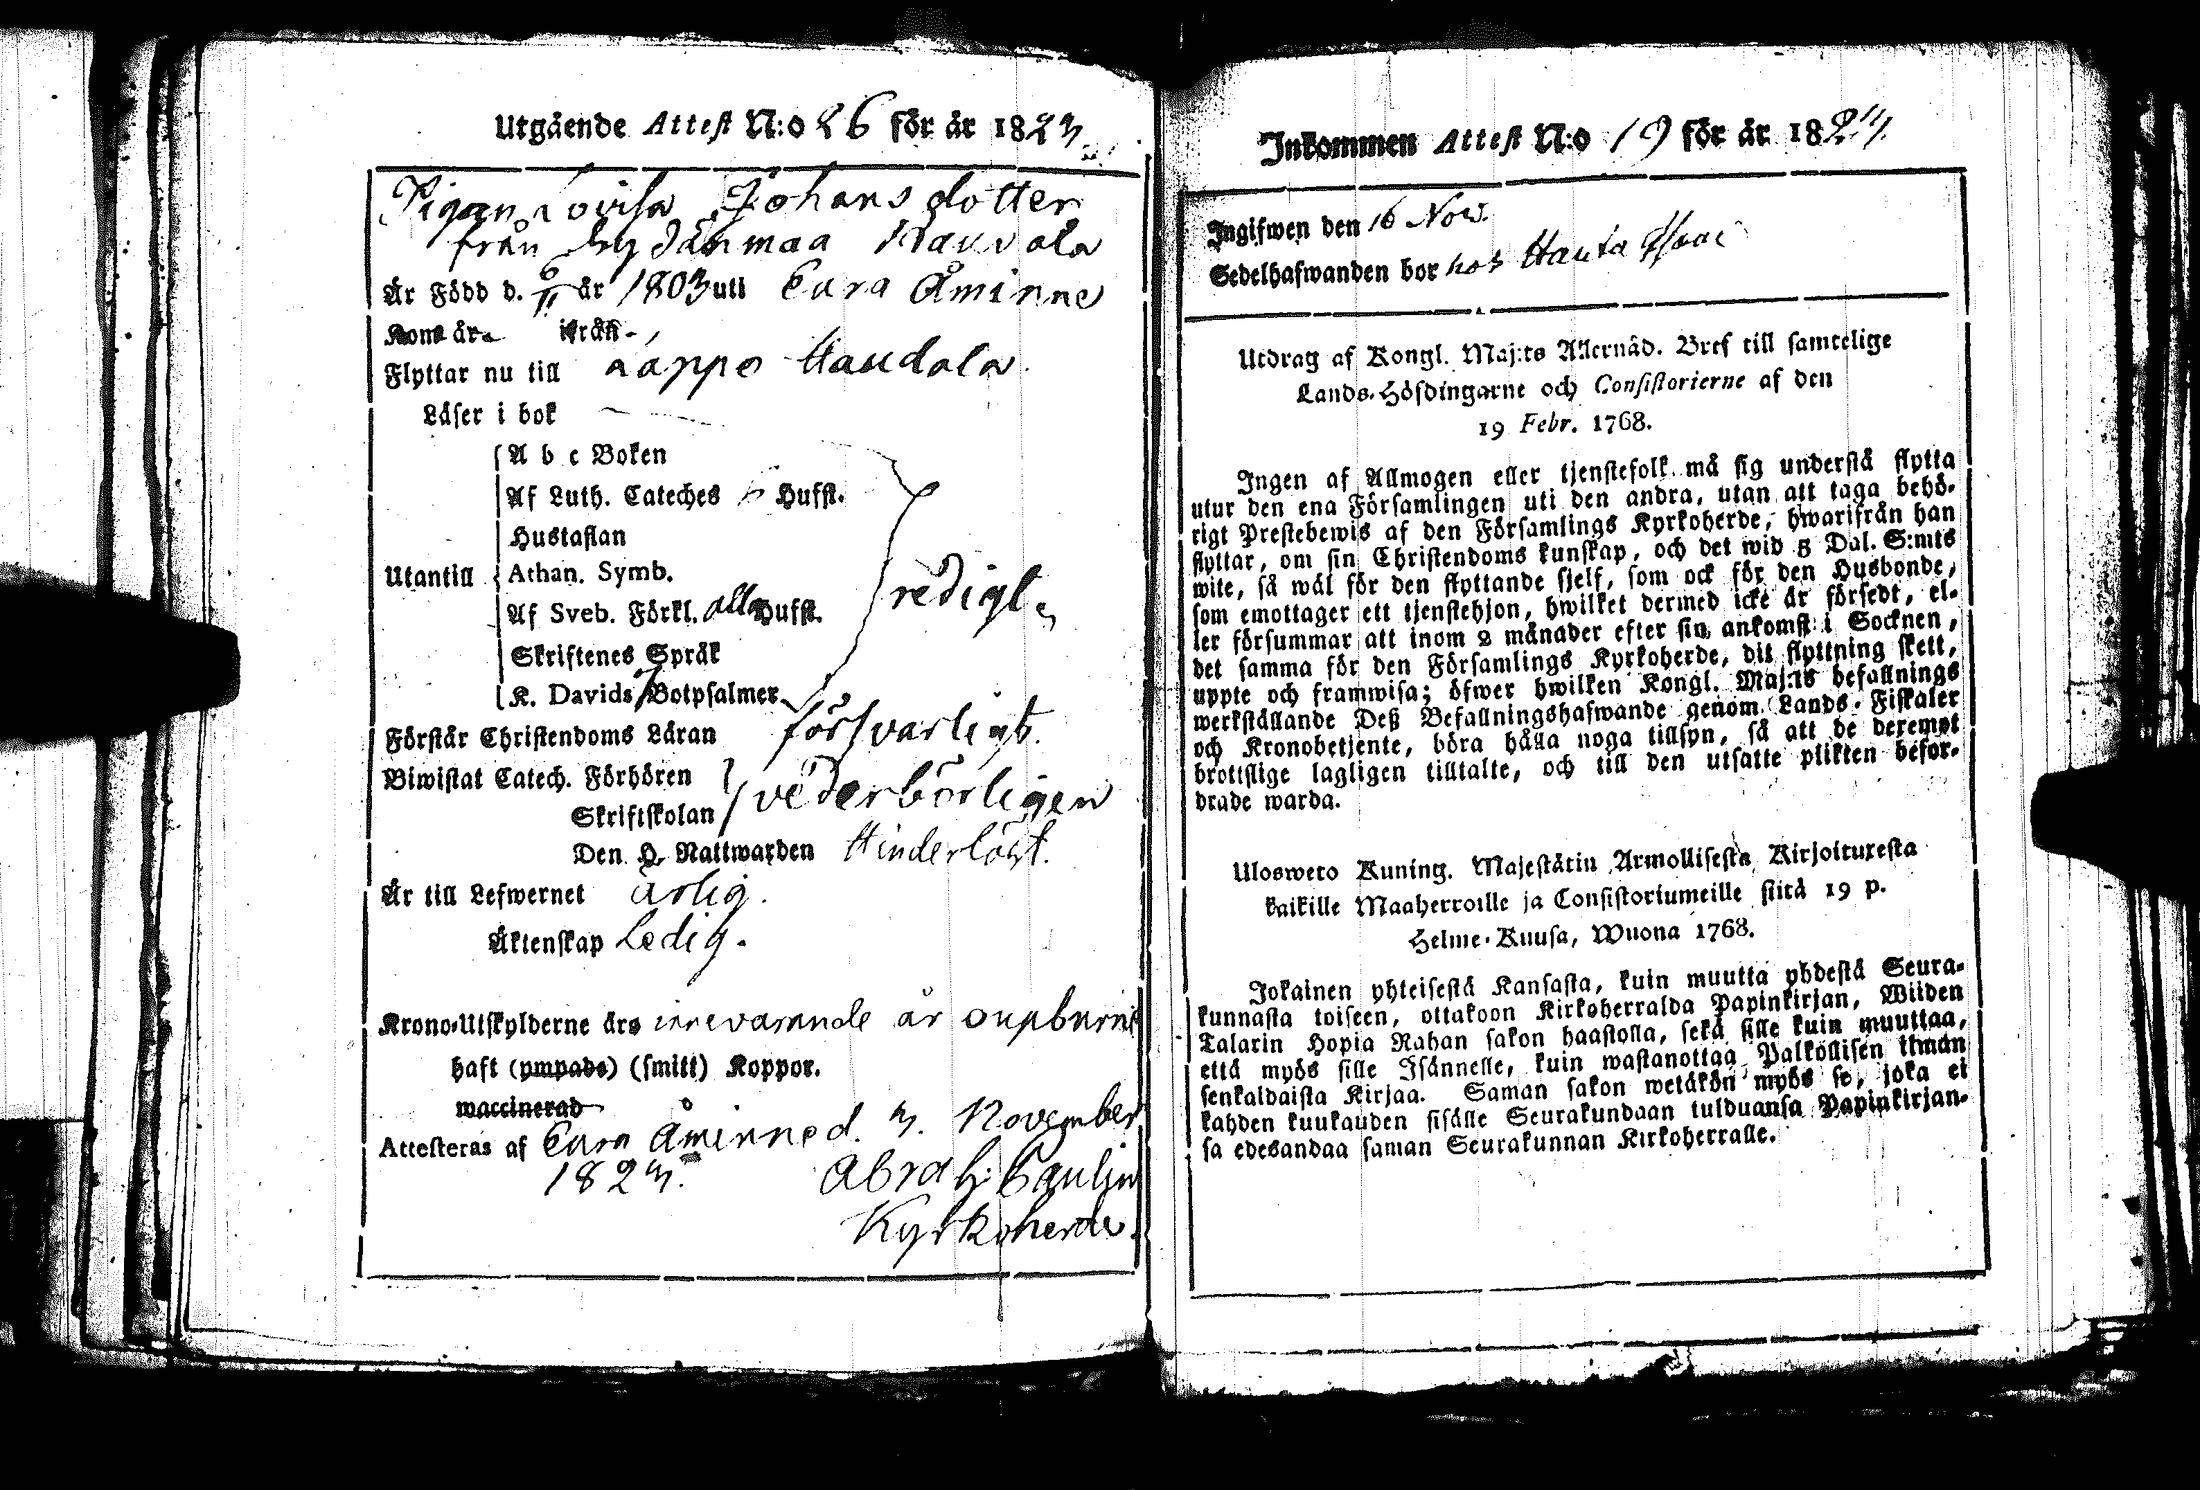 Utgående Attest N:o 26 för år 1823
Pigan Lovisa Johansdotter
från Sydänmaa Haudala
Är Född d. 6/11 år 1803 uti Eura Åminne
Kom år ifrån
Flyttar nu till Lappo Haudala
Läser i bok
A b c Boken
Af Luth. Cateches Hufst.
Hustaflan
Utantill Athan. Symb.
Af Sveb. Förkl. alla Hufst. redigt
Skriftenes Språk
K. Davids 7 Botpsalmer
Förstår Christendoms Läran försvarligt.
Biwistat Catech. Förhören
Skriftskolan wederbörligen
Den H. Nattwarden Hinderlöst.
Är till Lefwernet ärlig.
Äktenskap Ledig.
Krono-Utskylderne äro innevarande år oupburne
haft (ympade) (smitt) Koppor.
waccinerad
Attesteras af Eura Åminne d. 3. November
1823. Abrah: Paulin
Kyrkoherde.
Inkommen Attest N:o 19 för år 1823.
Ingifwen den 16 Nov.
Sedelhafwanden bor hos Hauta
Utdrag af Kongl. Maj:ts Allernåd. Bref till samtelige
Lands-Höfdingarne och Consistorierne af den
19 Febr. 1768.
Ingen af Allmogen eller tjenstefolk må sig understå flytta
utur den ena Församlingen uti den andra, utan att taga behö-
rigt Prestebewis af den Församlings Kyrkoherde, hwarifrån han
flyttar, om sin Christendoms kunskap, och det wid 5 Dal. S:mts
wite, så wäl för den flyttande sjelf, som ock för den Husbonde,
som emottager ett tjenstehjon, hwilket dermed icke är försedt, el-
ler försummar att inom 2 månader efter sin ankomst i Socknen,
det samma för den Församlings Kyrkoherde, dit flyttning skett,
uppte och framwisa; öfwer hwilken Kongl. Maj:ts befallnings
werkställande Deß Befallningshafwande genom Lands-Fiskaler
och Kronobetjente, böra hålla noga tillsyn, så att de deremot
brottslige lagligen tilltalte, och till den utsatte plikten befor-
drade warda.
Ulosweto Kuning. Majestätin Armollisesta Kirjoituxesta
kaikille Maaherroille ja Consistoriumeille siitä 19 p.
Helme-Kuusa, Wuona 1768.
Jokainen yhteisestä Kansasta, kuin muutta yhdestä Seura-
kunnasta toiseen, ottakoon Kirkoherralda Papinkirjan, Wiiden
Talarin Hopia Rahan sakon haastolla, sekä sille kuin muuttaa,
että myös sille Isännelle, kuin wastanottaa Palkollisen ilman
senkaldaista Kirjaa. Saman sakon wetäkön myös se, joka ei
kahden kuukauden sisälle Seurakundaan tulduansa Papinkirjan-
sa edesandaa saman Seurakunnan Kirkoherralle.